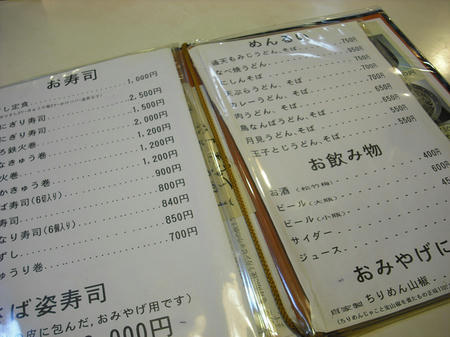 お寿司
し定食 1,000円
2,500円
にぎり寿司 1,500円
にぎり寿司 2,000円
ろ鉄火巻 1,200円
火巻 1,200円
なきゅう巻 1,200円
かきゅう巻 900円
ば寿司(6切入り) 800円
寿司 840円
なり寿司(6個入り) 850円
ずし 700円
ゅうり巻
ば姿寿司
皮に包んだ,おみやげ用です)
,000円
めんるい
満天もみじうどん、そば 750円
なべ焼うどん 950円
にしんそば 750円
天ぷらうどん、そば 700円
カレーうどん、そば 650円
肉うどん、そば 650円
鳥なんばうどん、そば 650円
月見うどん、そば 550円
玉子とじうどん、そば 550円
お飲み物
お酒(松竹梅) 400円
ビール(大瓶) 600円
ビール(小瓶) 45
サイダー
ジュース
おみやげに
自家製 ちりめん山椒